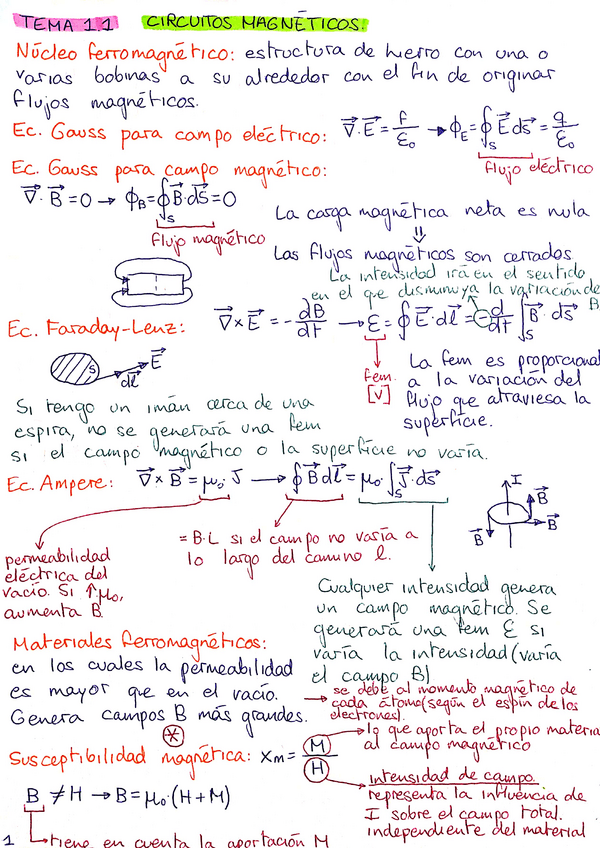 TEMA 1.1 CIRCUITOS MAGNÉTICOS.
Núcleo ferromagnético: estructura de hierro con una o
varias bobinas a su alrededor con el fin de originar
flujos magnéticos.
Ec. Gauss para campo eléctrico: ∇·E⃗ = f/ε₀ → Φ_E = ∮_S E⃗ ds⃗ = q/ε₀
flujo eléctrico
Ec. Gauss para campo magnético:
∇·B⃗ = 0 → Φ_B = ∮_S B⃗·ds⃗ = 0
flujo magnético
La carga magnética neta es nula
⇓
Los flujos magnéticos son cerrados
La intensidad irá en el sentido
en el que disminuya la variación de
B
Ec. Faraday-Lenz: ∇×E⃗ = -dB⃗/dt → ε = ∮E⃗·dl⃗ = -d/dt ∫_S B⃗·ds⃗
S dl⃗ E⃗
fem.
[V]
La fem es proporcional
a la variación del
flujo que atraviesa la
superficie.
Si tengo un imán cerca de una
espira, no se generará una fem
si el campo magnético o la superficie no varía.
Ec. Ampere: ∇×B⃗ = μ₀·J⃗ → ∮B⃗ dl⃗ = μ₀·∫_S J⃗·ds⃗
I B⃗ B⃗ B⃗
= B·L si el campo no varía a
lo largo del camino l.
permeabilidad
eléctrica del
vacío. Si ↑μ₀,
aumenta B.
Cualquier intensidad genera
un campo magnético. Se
generará una fem ε si
varía la intensidad (varía
el campo B)
Materiales ferromagnéticos:
en los cuales la permeabilidad
es mayor que en el vacío.
Genera campos B más grandes.
*
se debe al momento magnético de
cada átomo (según el espín de los
electrones).
Susceptibilidad magnética: Xm = M/H
lo que aporta el propio material
al campo magnético
intensidad de campo.
representa la influencia de
I sobre el campo total.
independiente del material
B ≠ H → B = μ₀·(H+M)
1
tiene en cuenta la aportación M